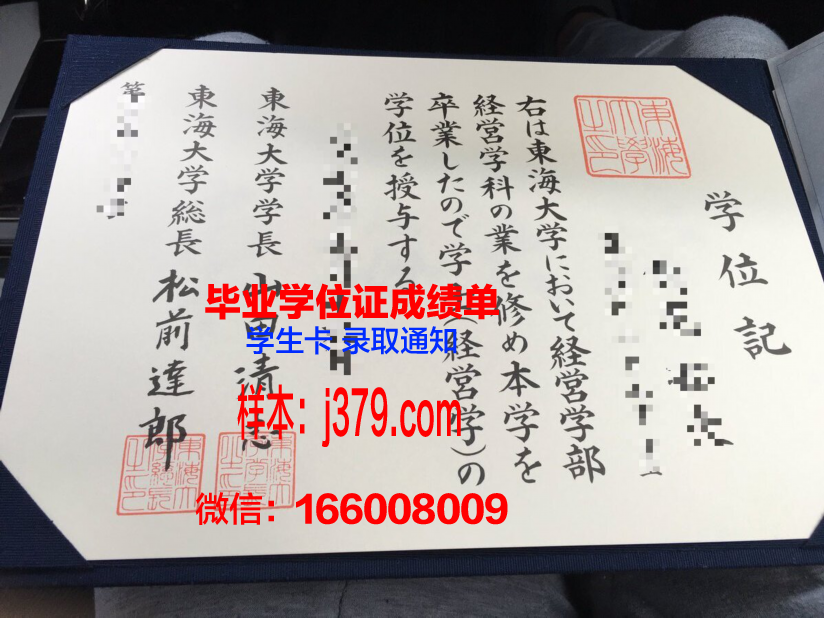 学位記
東海大学之印
右は東海大学において経営学部
経営学科の業を修め本学を
卒業したので学士(経営学)の
学位を授与する
東海大学学長 山田清志
東海大学総長 松前達郎
毕业学位证成绩单
学生卡 录取通知
样本：j379.com
微信：166008009